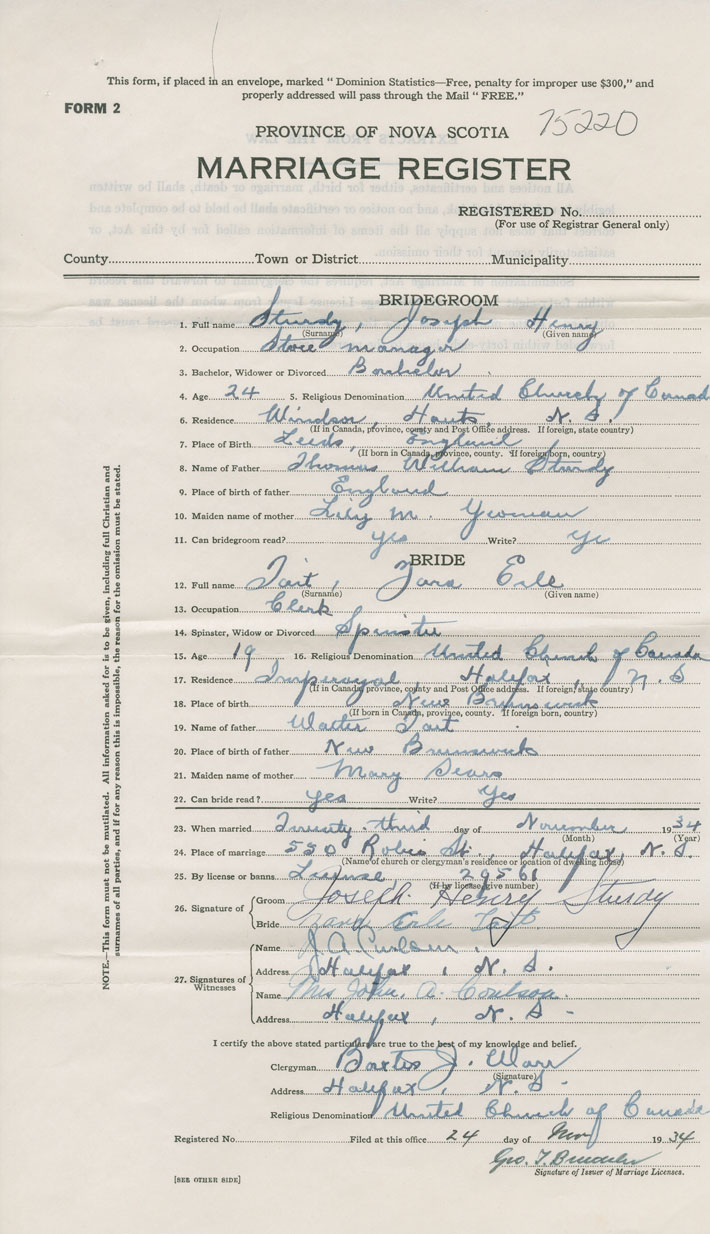 This form, if placed in an envelope, marked " Dominion Statistics—Free, penalty for improper use $300," and
properly addressed will pass through the Mail " FREE."
FORM 2
PROVINCE OF NOVA SCOTIA
75220
MARRIAGE REGISTER
REGISTERED No.
(For use of Registrar General only)
County Town or District Municipality
BRIDEGROOM
1. Full name Sturdy, Joseph Henry
(Surname) (Given name)
2. Occupation Store manager
3. Bachelor, Widower or Divorced Bachelor
4. Age 24 5. Religious Denomination United Church of Canada
6. Residence Windsor, Hants, N. S.
(If in Canada, province, county and Post Office address. If foreign, state country)
7. Place of Birth Leeds, England
(If born in Canada, province, county. If foreign born, country)
8. Name of Father Thomas William Sturdy
9. Place of birth of father England
10. Maiden name of mother Lily M. Yeoman
11. Can bridegroom read? yes Write? yes
BRIDE
12. Full name Tait, Zara Erle
(Surname) (Given name)
13. Occupation Clerk
14. Spinster, Widow or Divorced Spinster
15. Age 19 16. Religious Denomination United Church of Canada
17. Residence Imperoyal, Halifax, N. S
(If in Canada, province, county and Post Office address. If foreign, state country)
18. Place of birth New Brunswick
(If born in Canada, province, county. If foreign born, country)
19. Name of father Walter Tait
20. Place of birth of father New Brunswick
21. Maiden name of mother Mary Sears
22. Can bride read? yes Write? Yes
23. When married Twenty-third day of November 1934
(Month) (Year)
24. Place of marriage 550 Robie St., Halifax, N. S.
(Name of church or clergyman's residence or location of dwelling house)
25. By license or banns License, 29561
(If by license, give number)
26. Signature of Groom Joseph Henry Sturdy
Bride Zara Erle Tait
27. Signatures of Witnesses
Name J. A.
Address Halifax, N. S.
Name Mrs John. A. Coulson.
Address Halifax, N. S -
I certify the above stated particulars are true to the best of my knowledge and belief.
Clergyman J.
(Signature)
Address Halifax, N. S -
Religious Denomination United Church of Canada
Registered No. Filed at this office 24 day of Nov 1934
Geo. T.
Signature of Issuer of Marriage Licenses.
[SEE OTHER SIDE]
NOTE.—This form must not be mutilated. All information asked for is to be given, including full Christian and
surnames of all parties, and if for any reason this is impossible, the reason for the omission must be stated.